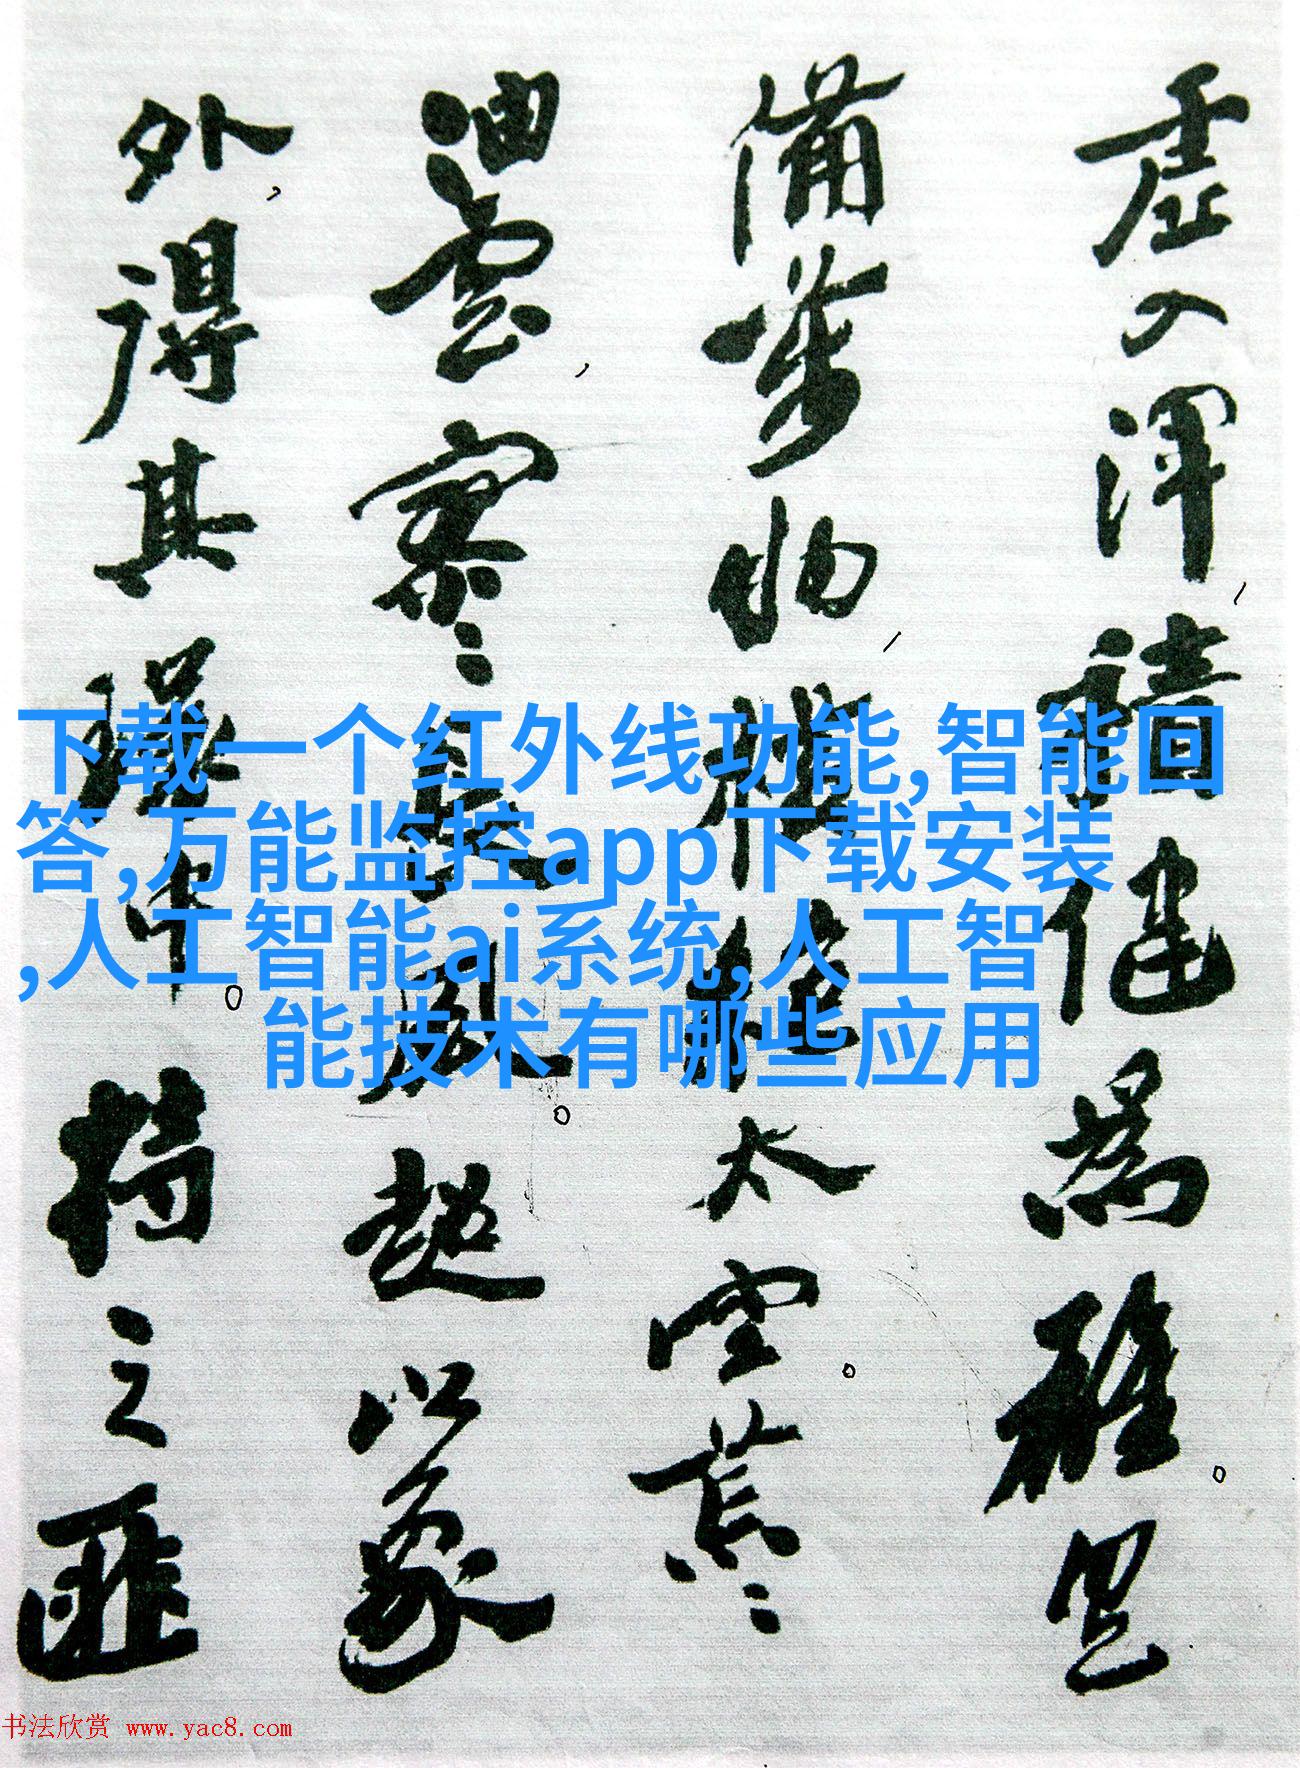 虚入渾,積健為雄。具
備萬物,横絶太空。荒〻
油雲,寥〻長風。超以象
外,得其環中。持之匪
下载一个红外线功能,智能回
答,万能监控app下载安装
,人工智能ai系统,人工智
能技术有哪些应用
书法欣赏 www.yac8.com